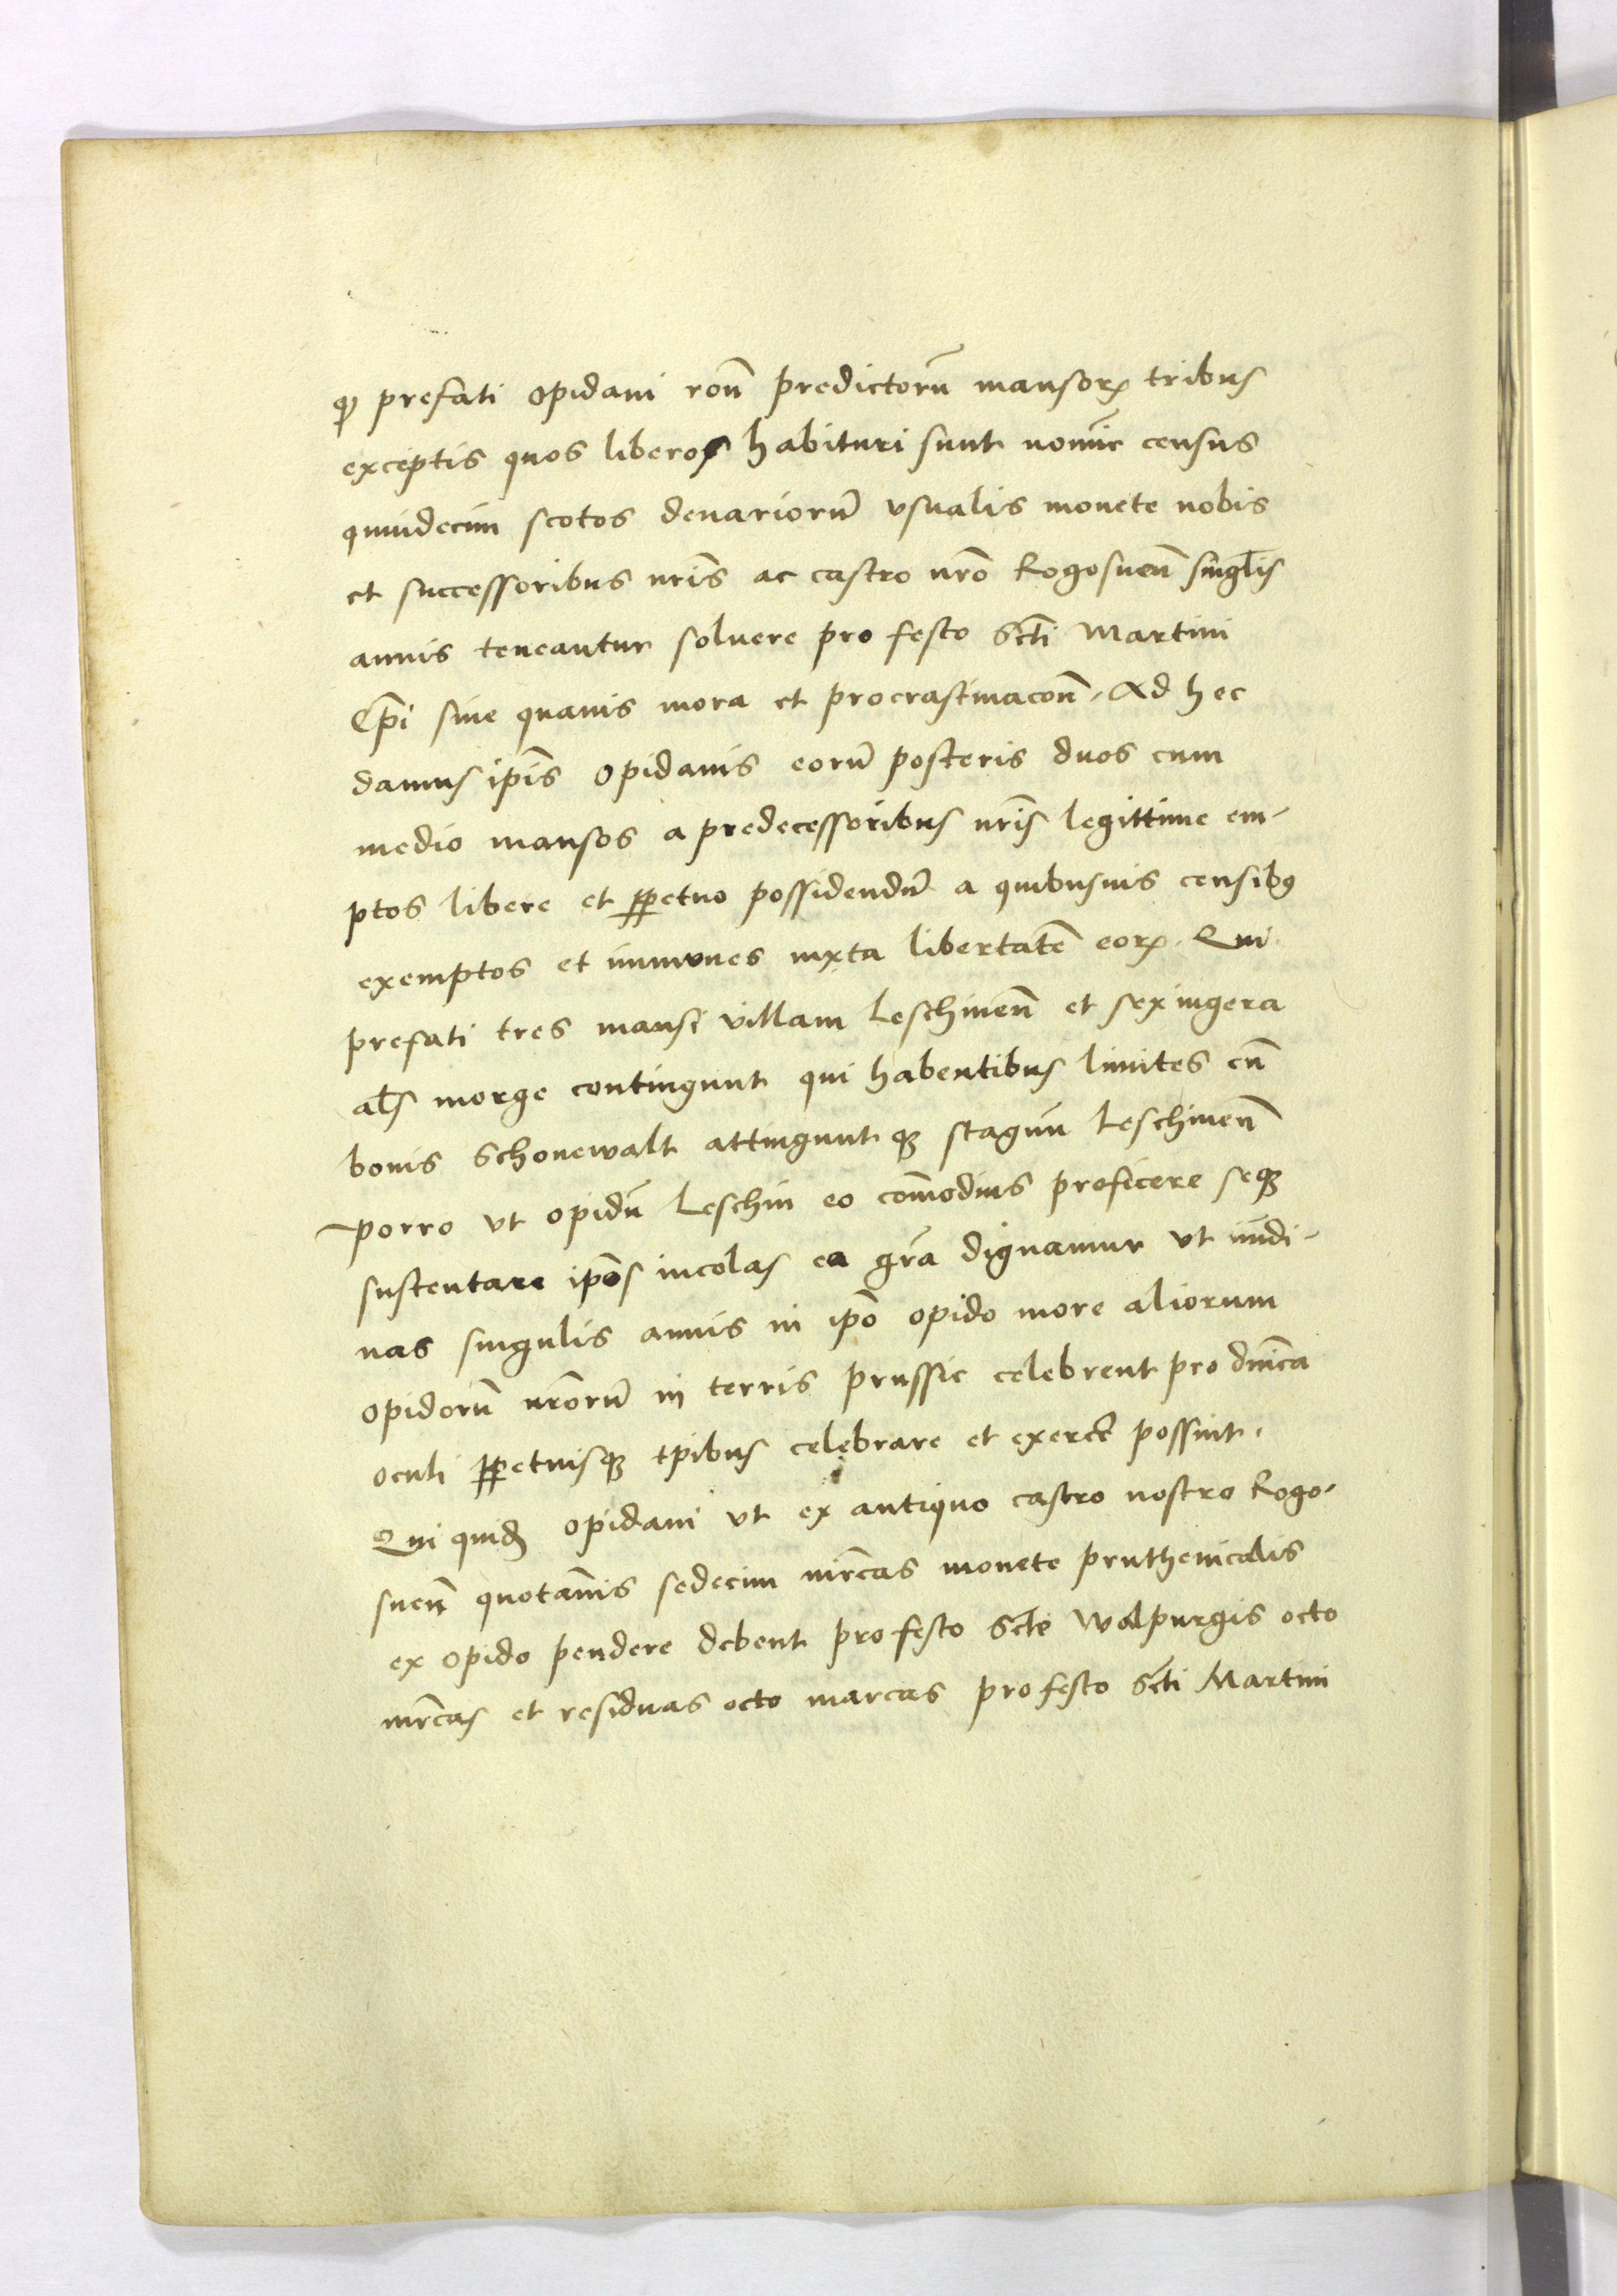 qͻ prefati opidani ron̄ predictorū mansorꝝ tribus
exceptis quos liberos habituri sunt nomīe census
quindecim scotos denariorū vsualis monete nobis
et successoribus nr̄is ac castro nrō Rogosnen̄ singlīs
annis teneantur soluere pro festo Sctī Martini
Ep̄i sine quauis mora et procrastinacōn̄. Ad hec
damus ip̄is opidanis eorū posteris duos cum
medio mansos a predecessoribus nr̄is legittime em-
ptos libere et ꝑpetuo possidendū a quibusuis censibꝯ
exemptos et immunes iuxta libertatē eorꝝ. Qui
prefati tres mansi villam Leschinen̄ et sex iugera
al̄s morge contingunt qui habentibus limites cū
bonis Schonewalt attingunt qꝫ stagnū Leschinen̄
Porro vt opidū Leschin eo com̄odius proficere seqꝫ
sustentare ip̄os incolas ea gr̄a dignamur vt nūdi-
nas singulis annis in ip̄o opido more aliorum
opidorū nr̄orū in terris prussie celebrent pro dn̄ica
oculi ꝑpetuisqꝫ tp̄ibus celebrare et exerc̄e possint.
Qui quidē opidani vt ex antiquo castro nostro Rogo-
snen̄ quotan̄is sedecim mr̄cas monete pruthenicalis
ex opido pendere debent pro festo Sctē Walpurgis octo
mr̄cas et residuas octo marcas pro festo Sctī Martini